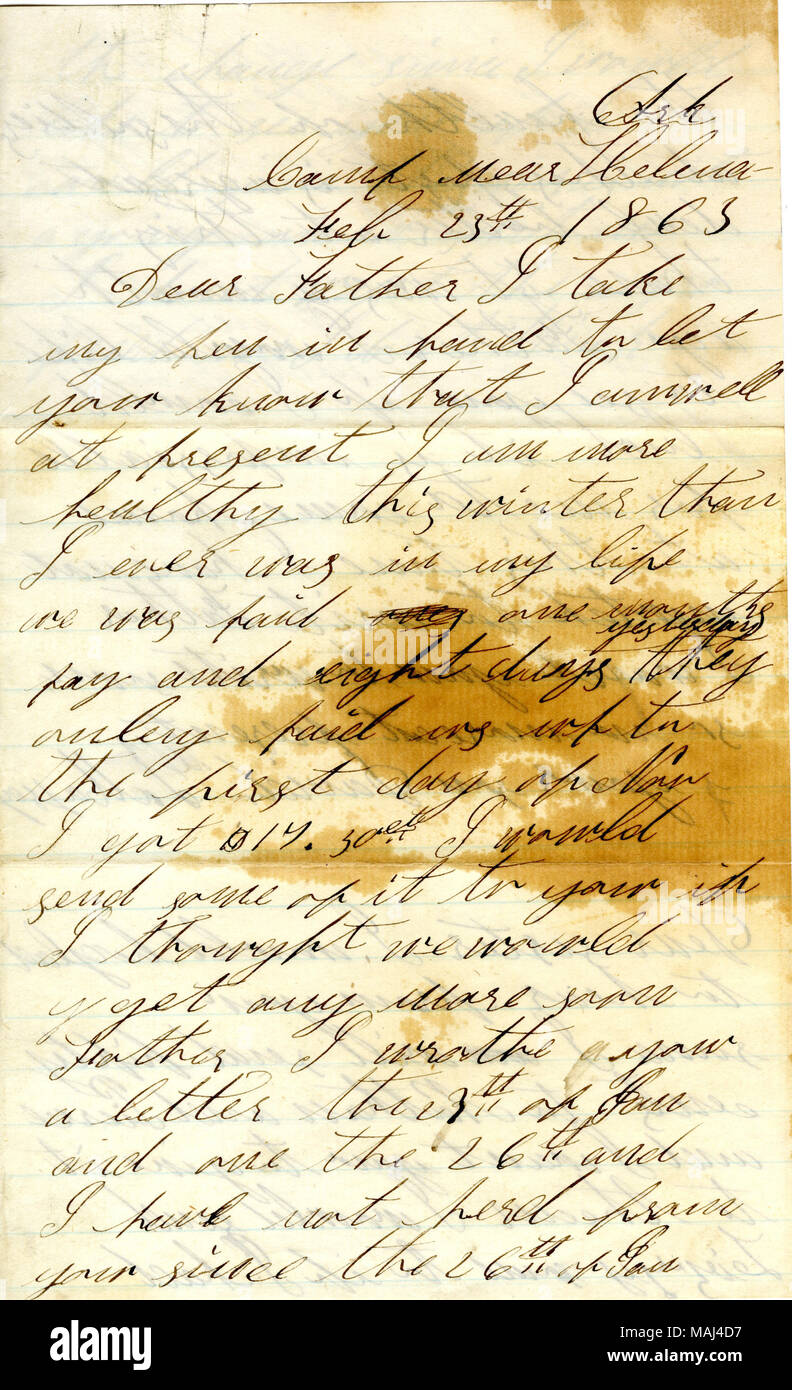 Ark
Camp near Helena
Feb 23th 1863
Dear Father I take
my pen in hand to let
your know that I am well
at present I am more
healthy this winter than
I ever was in my life
we was paid one months
yesterday
pay and eight days they
onley paid us up to
the first day of Nov
I got $17.30cts I would
send some of it to your if
I thought we would
get any more soon
Father I wrathe a your
a letter the 23th of Jan
and one the 26th and
I have not herd from
your since the 26th of Jan
alamy
Image ID: MAJ4D7
www.alamy.com